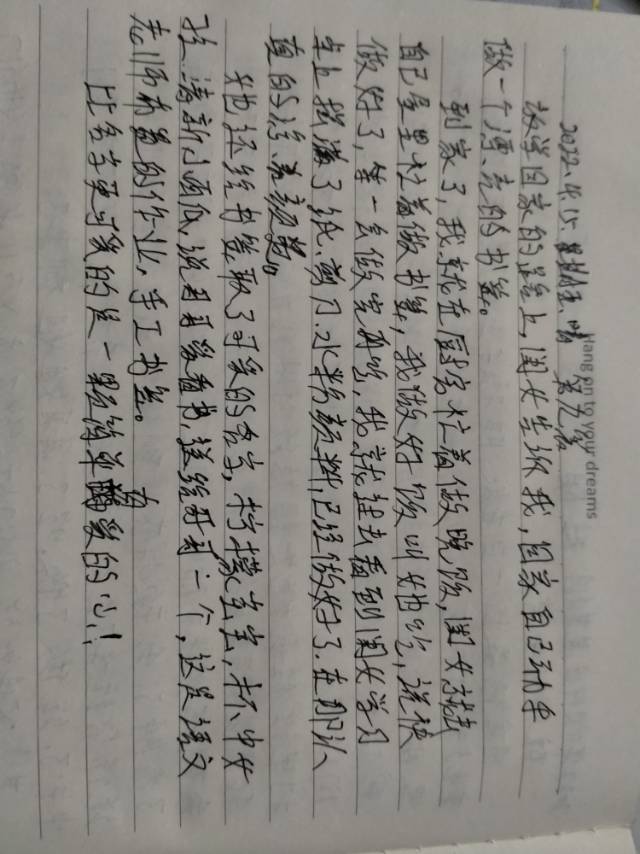 Hang on to your dreams
2022.4.15. 星期五、晴 第九篇
放学回家的路上,闺女告诉我,回家自己动手
做一个漂亮的书签。
到家了,我就在厨房忙着做晚饭,闺女就去
自己屋里忙着做书签,我做好饭叫她吃,说快
做好了,等一会做完再吃,我就进去看到闺女学习
桌上摆满了纸、剪刀、水粉颜料,已经做好了.在那认
真的涂着颜色。
她还给书签取了可爱的名字,柠檬宝宝,杯中女
孩、清新小西瓜,说哥哥爱看书,送给哥哥一个,这是语文
老师布置的作业,手工书签。
比名字更可爱的是一颗简单有爱的心!